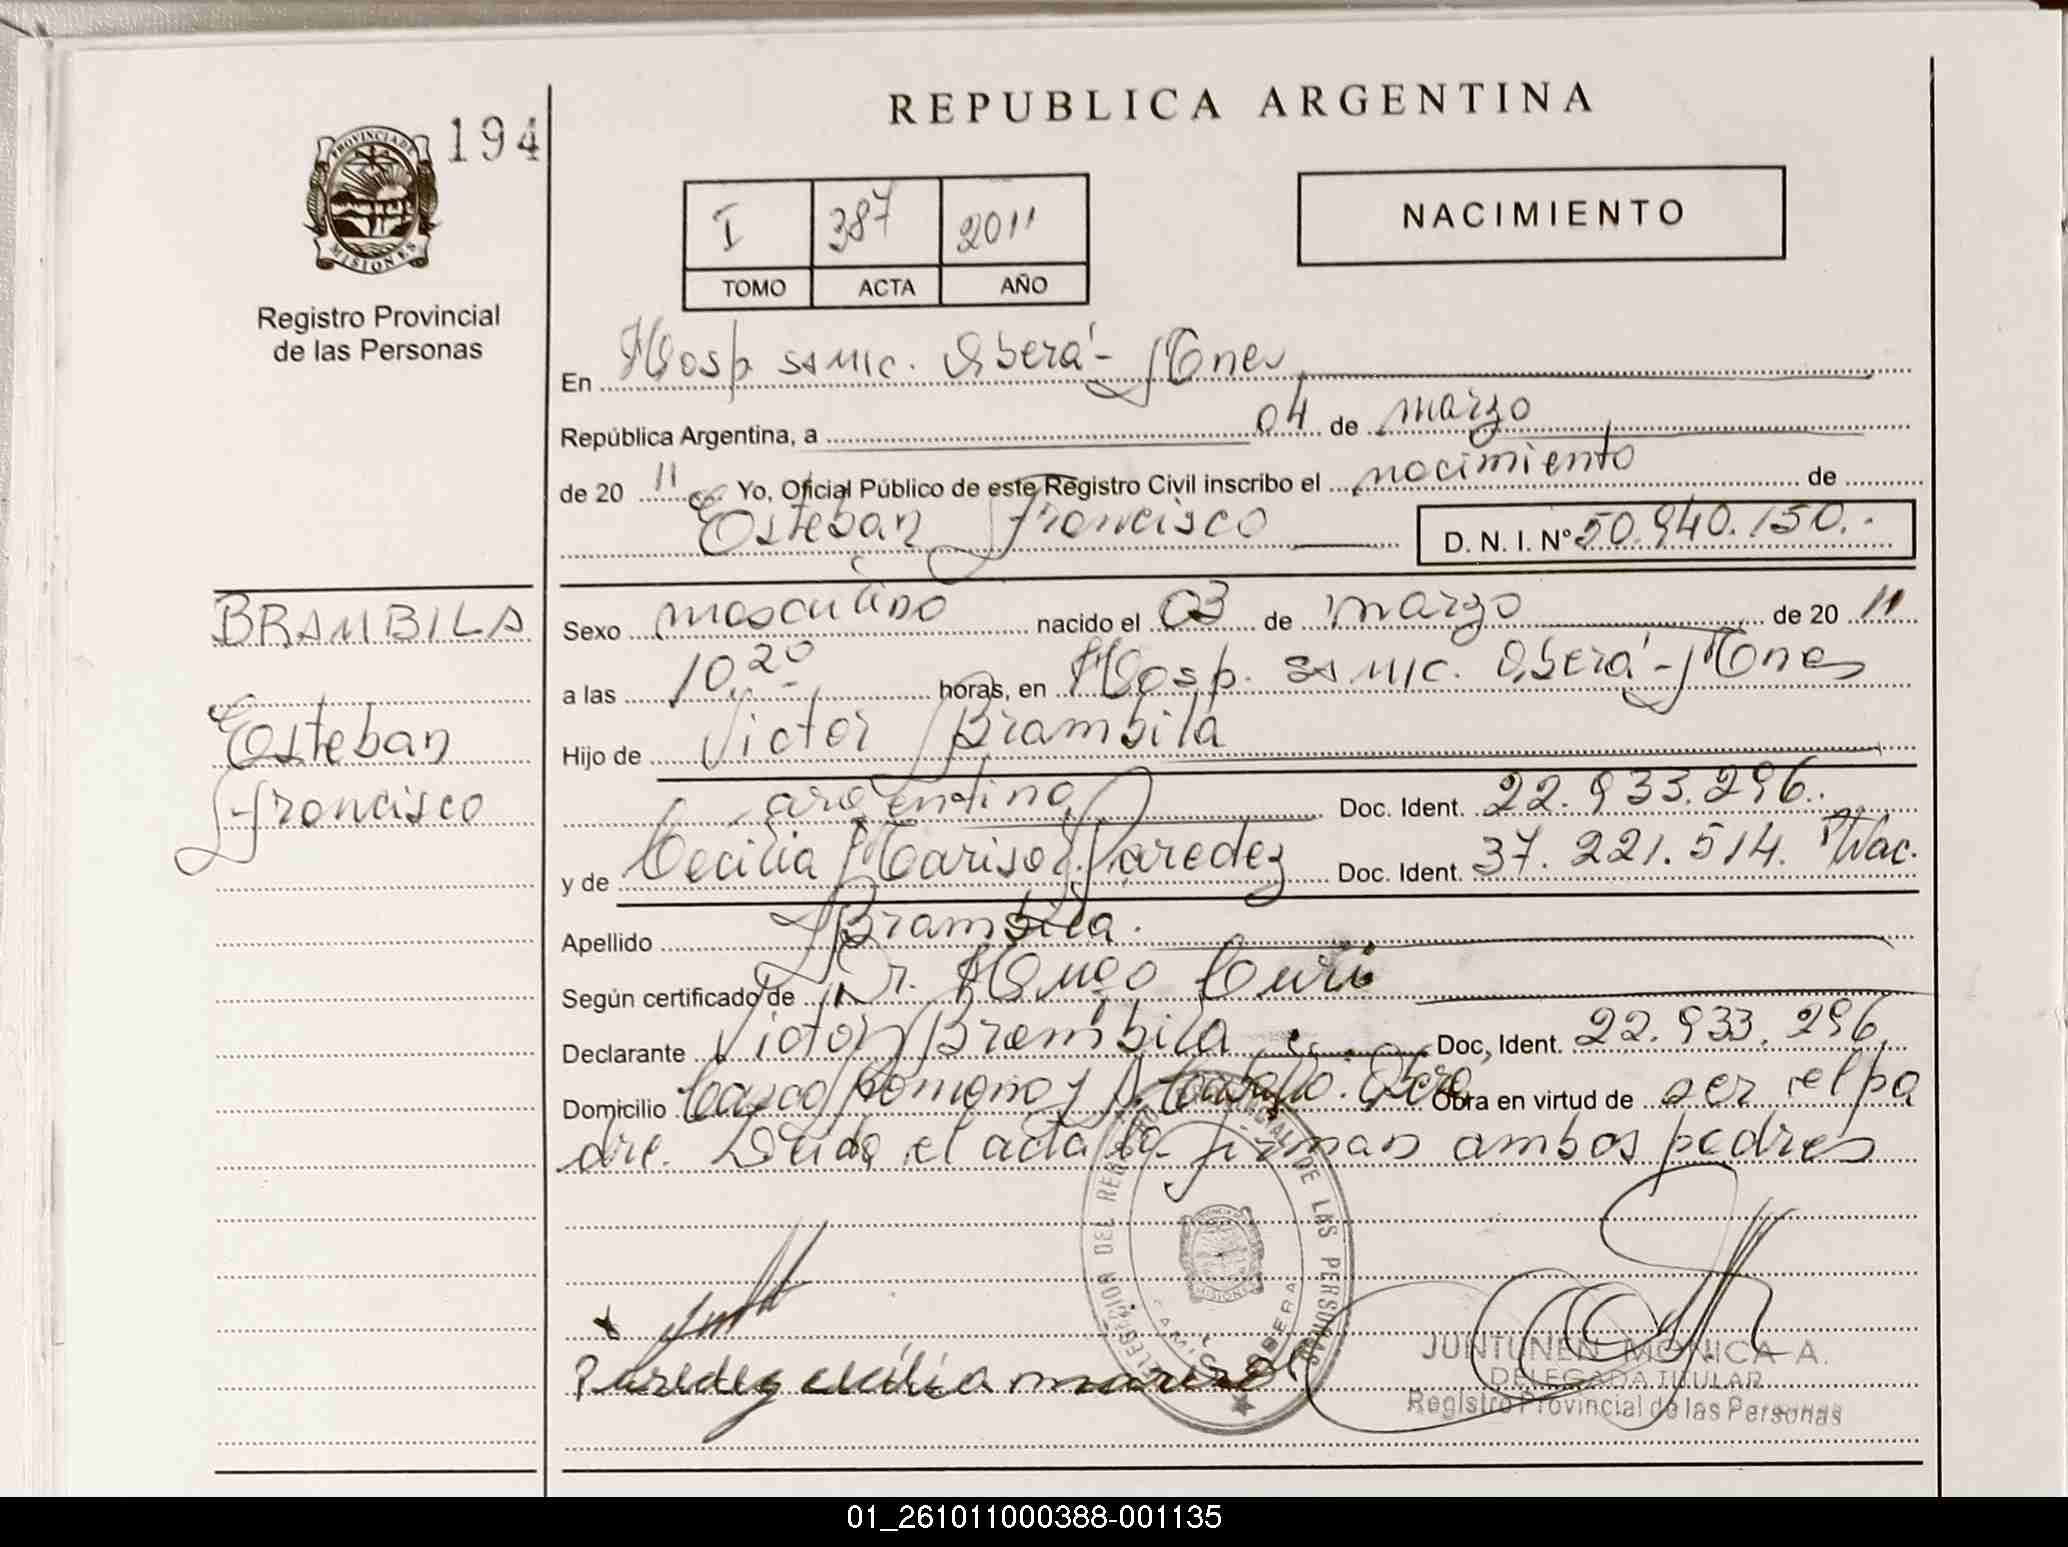 REPUBLICA ARGENTINA
PROVINCIA DE MISIONES
194
Registro Provincial
de las Personas
I 387 2011
TOMO ACTA AÑO
NACIMIENTO
En Hosp. SAMIC. Oberá - Mnes
República Argentina, a 04 de marzo
de 20 11 Yo, Oficial Público de este Registro Civil inscribo el nacimiento de
Esteban Francisco D. N. I. Nº 50.940.150.-
BRAMBILA
Esteban
Francisco
Sexo masculino nacido el 03 de marzo de 20 11
a las 10,20 horas, en Hosp. SAMIC. Oberá - Mnes
Hijo de Victor Brambila
argentino Doc. Ident. 22.933.296.
y de Cecilia Marisol Paredez Doc. Ident. 37.221.514. Nac.
Apellido Brambila.
Según certificado de Dr. Hugo Curi
Declarante Victor Brambila Doc. Ident. 22.933.296
Domicilio Romero y Obra en virtud de ser el pa
dre. Leida el acta la firman ambos padres
DELEGACION DEL REGISTRO PROVINCIAL DE LAS PERSONAS
MISIONES
OBERA
Paredez cecilia marisol
JUNTUNEN MONICA A.
DELEGADA TITULAR
Registro Provincial de las Personas
01_261011000388-001135